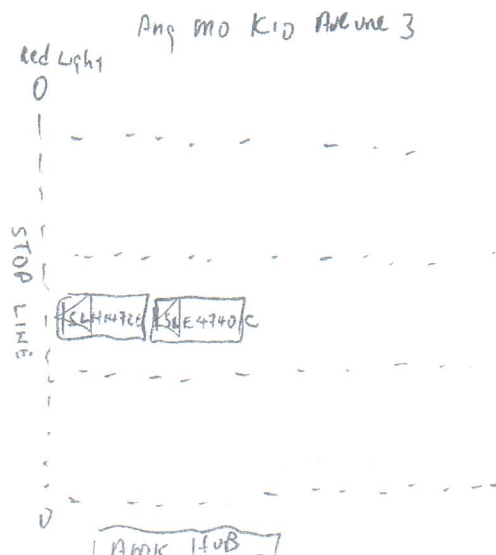 Ang Mo Kio Avenue 3
Red Light
STOP LINE
SLE4740C
AMK HUB